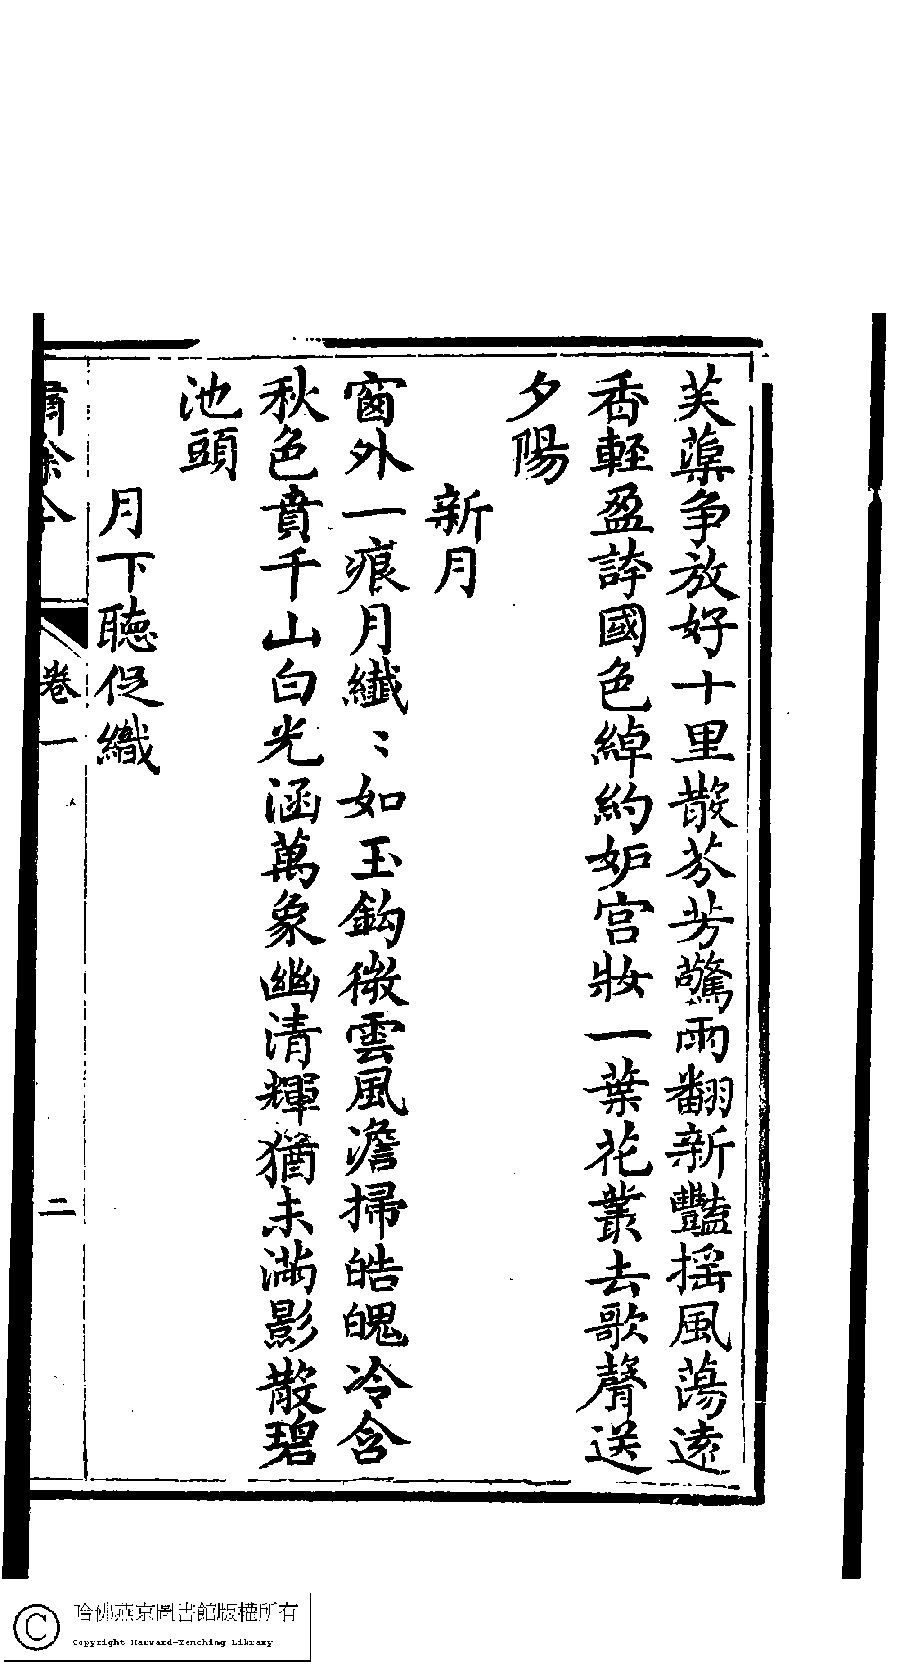 芙蕖争放好十里散芬芳驚雨翻新豔揺風蕩遠
香輕盈誇國色綽約妒宫妝一葉花叢去歌聲送
夕陽
新月
窗外一痕月纖〻如玉鈎微雲風澹掃皓魄冷含
秋色賁千山白光涵萬象幽清輝猶未滿影散碧
池頭
月下聽促織
繡餘
卷一
二
哈佛燕京圖書館版權所有
Copyright Harvard-Yenching Library